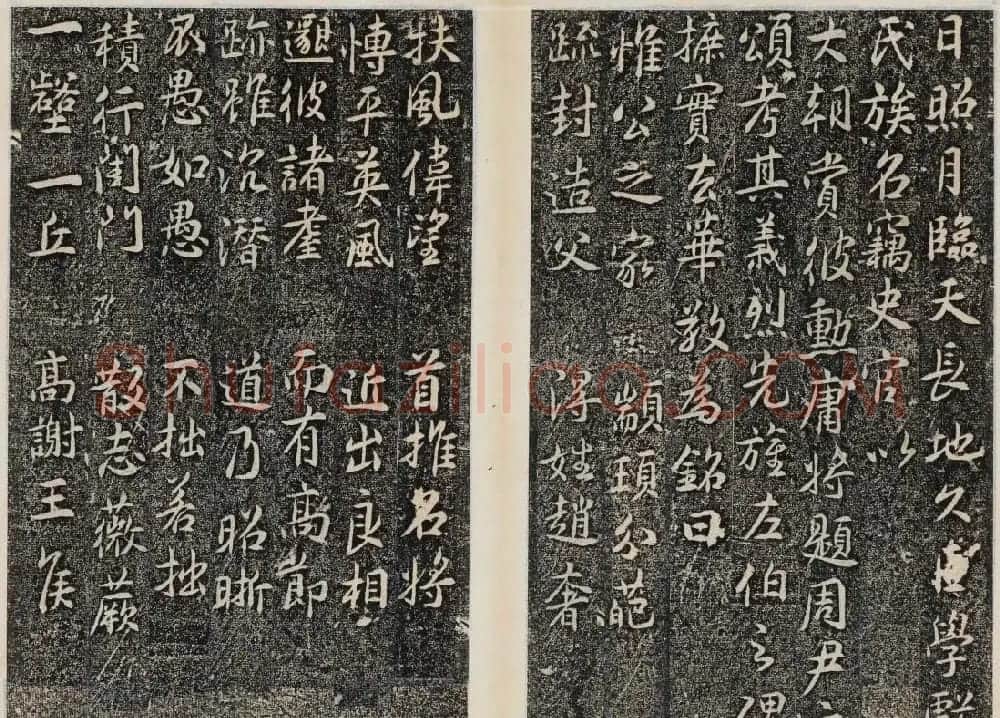 日照月臨天長地久 學
氏族名竊史官以
大朝賞彼勳庸將題周尹之
頌考其義烈先旌左伯之
摭實去華敬為銘曰
惟公之家 顓頊分葩
疏封造父 得姓趙奢
扶風偉望 首推名將
博平英風 近出良相
邈彼諸 而有高節
跡雖沉潛 道乃昭晰
愚如愚 不拙若拙
積行閨門 散志薇蕨
一壑一丘 高謝王侯
Shufaziliao.COM